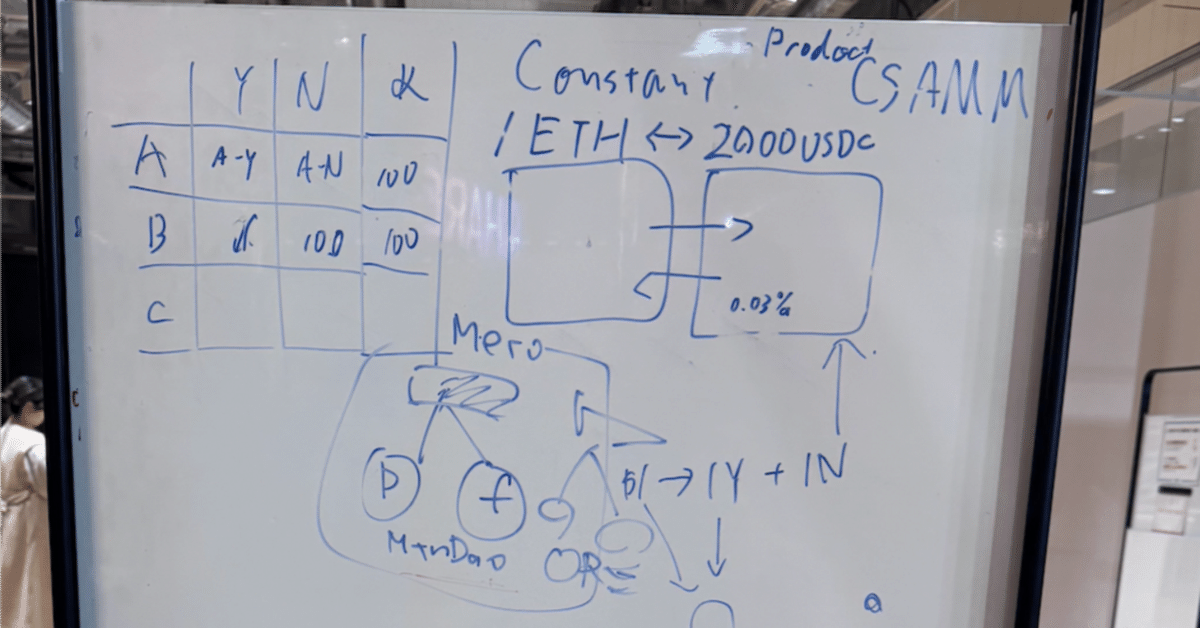 Y N K
A A-Y A-N 100
B 100 100
C
Product
Constant CSAMM
1 ETH ↔ 2000USDC
0.03%
Mero
P f
MtnDao
ORE
$1 → 1Y + 1N